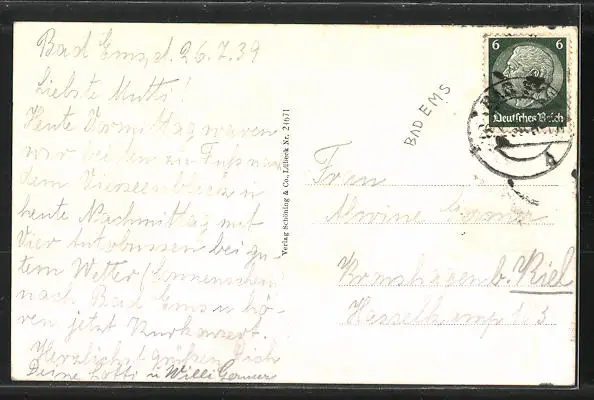 Bad Ems, d. 26.7.39
Liebste Mutti!
Heute Vormittag waren
wir beiden zu Fuß nach
dem Vierseenblick u
heute Nachmittag mit
vier Autobussen bei gu-
tem Wetter (Sonnenschein)
nach Bad Ems u hö-
ren jetzt Kurkonzert.
Herzlichst grüßen Dich
Deine Lotti u Willi
Verlag Schöning & Co., Lübeck Nr. 24671
BAD EMS
6 6
Deutsches Reich
Frau
Alwine
Kronshagen b. Kiel
Hasselkamp 3